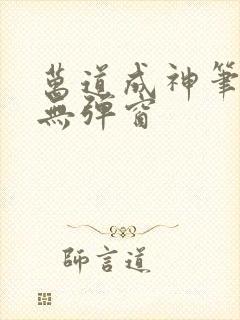 萬道成神筆
無彈窗
師言道